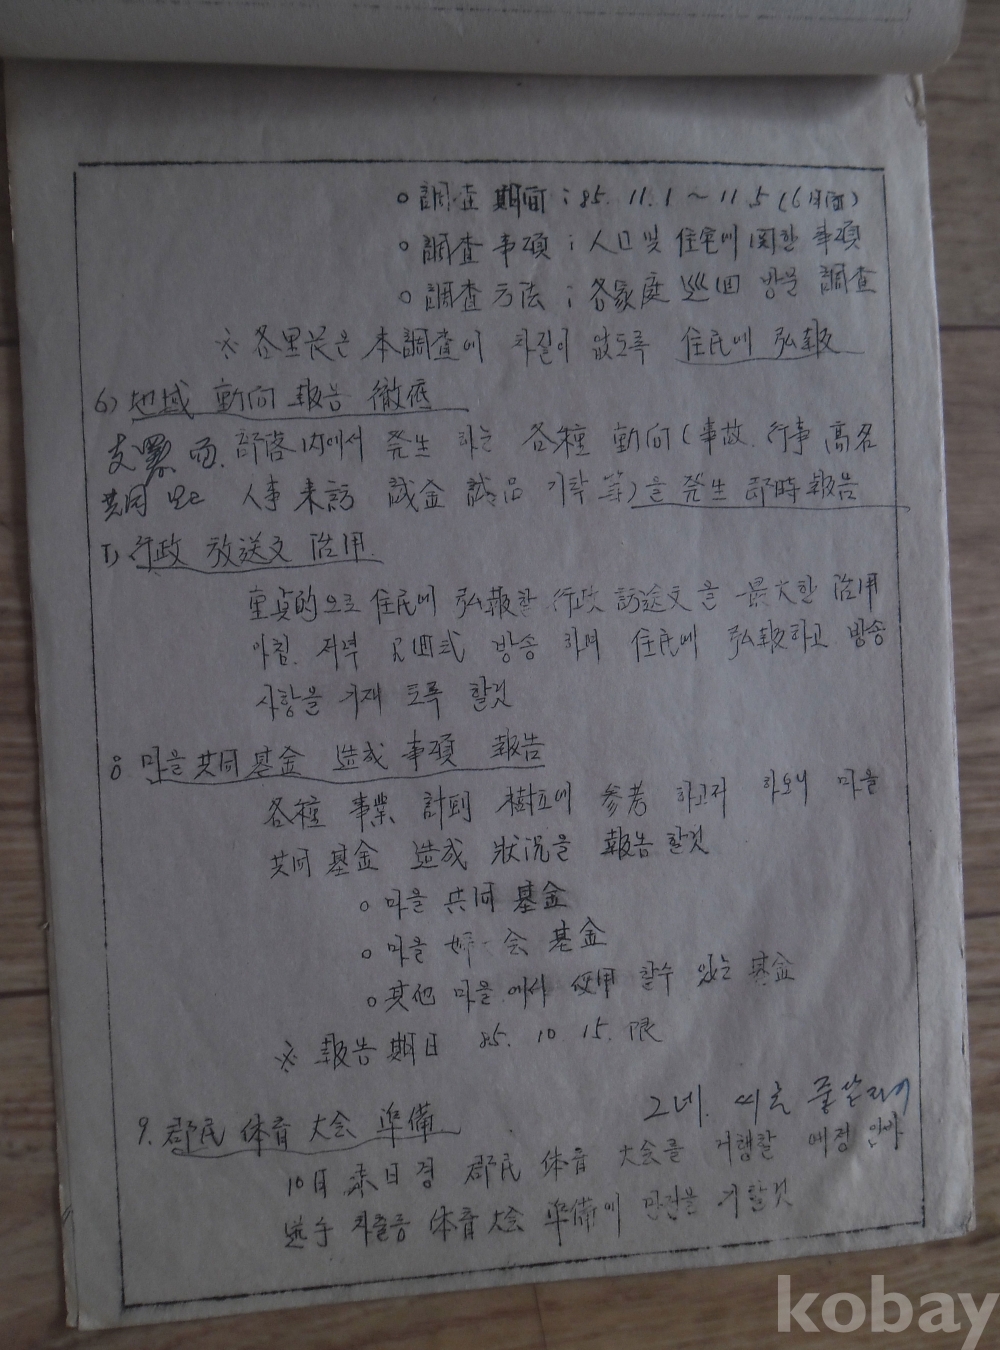 ○ 調査 期間 ; 85. 11. 1 ~ 11. 5 (6日間)
○ 調査 事項 ; 人口 및 住宅에 関한 事項
○ 調査 方法 ; 各家庭 巡回 방문 調査
※ 各里長은 本調査에 차질이 없도록 住民에 弘報
6) 地域 動向 報告 徹底
部落内에서 発生 하는 各種 動向 (事故. 行事 高名
共同 또는 人事 来訪 誠金 誠品 기탁 等)을 発生 即時 報告
7) 行政 放送文 活用
重点的으로 住民에 弘報할 行政 訪送文을 最大한 活用
아침. 저녁 2回式 방송 하며 住民에 弘報하고 방송
사항을 기재 토록 할것
8 마을 共同 基金 造成 事項 報告
各種 事業 計劃 樹立에 参考 하고자 하오니 마을
共同 基金 造成 狀況을 報告 할것
○ 마을 共同 基金
○ 마을 会 基金
○ 其他 마을에서 使用 할수 있는 基金
※ 報告 期日 85. 10. 15. 限
그네. 씨름
9. 郡民 体育 大会 準備
10月 末日경 郡民 体育 大会를 거행할 예정 인바
選手 차출등 体育 大会 準備에 만전을 기할것
kobay